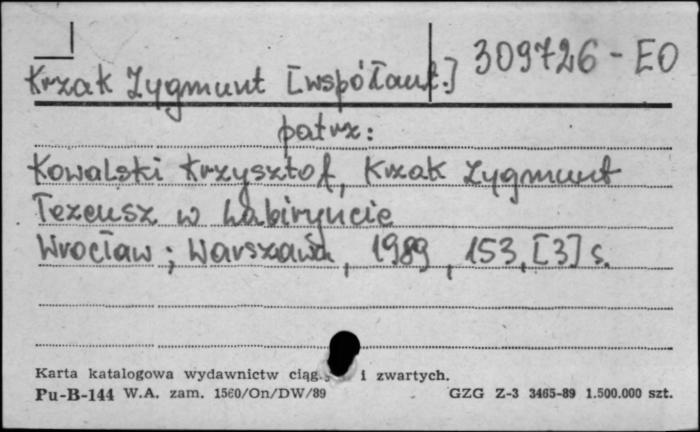 309726-EO
Krzak Zygmunt [współaut.]
patrz:
Kowalski Krzysztof, Krzak Zygmunt
Tezeusz w Labiryncie
Wrocław; Warszawa, 1989, 153, [3] s.
Karta katalogowa wydawnictw i zwartych.
Pu-B-144 W.A. zam. 1560/On/DW/89 GZG Z-3 3465-89 1.500.000 szt.